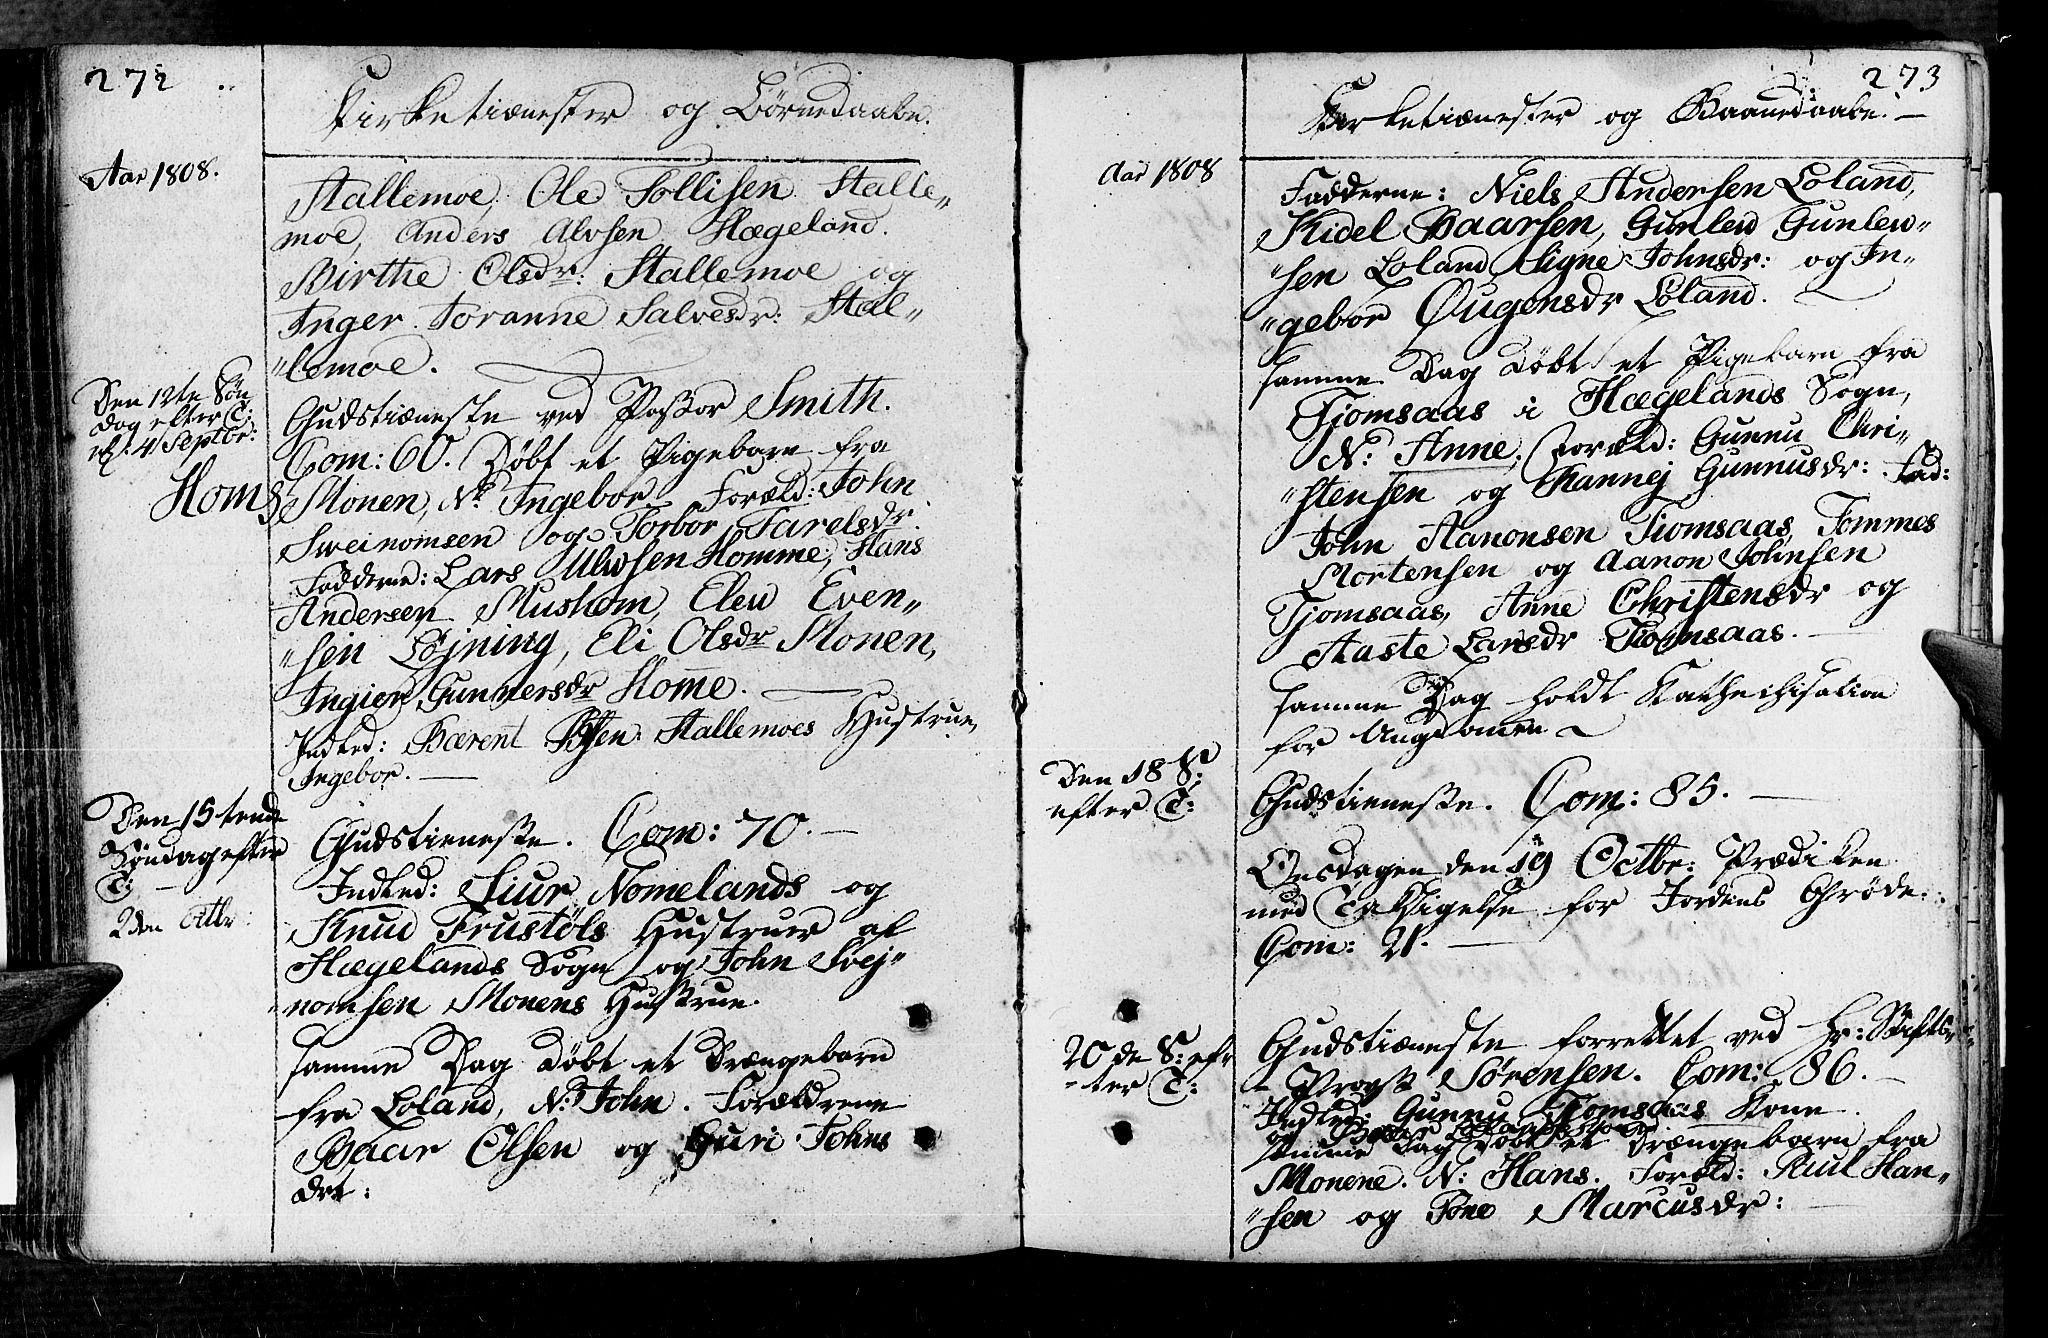 272
Kirketienester og Børnedaabe.
Aar 1808.
Stallemoe, Ole Tollisen Stalle„
moe, Anders Alvsen Hægeland.
Birthe Olsdr: Stallemoe og
Inger Joranne Salvesdr: Stal„
„lemoe.
Den 12te Søn
dag efter T:
d: 4 Septbr:
Gudstieneste ved Pastor Smith.
Com: 60. Døbt et Pigebarn fra
Homs
Monen, N: Ingebor Foræld: John
Sweinomsen og Torbor Tarelsdr:
Fadderne: Lars Ulvsen Homme, Hans
Andersen Mushom, Elew Even„
„sen Løjning, Eli Olsdr Monen,
Ingier Gunnersdr Home.
Indled: Bærent Stallemoes Hustrue,
Ingebor.
Den 15tende
Søndag efter
T:
2den Octbr:
Gudstieneste. Com: 70.
Indled: Siur Nomelands og
Knud Frustøls Hustruer af
Hægelands Sogn og John Svej„
„nomsen Monens Hustrue.
samme Dag døbt et Drængebarn
fra Loland, N: John. Forældrene
Baar Olsen og Guri Johns
dr:
273
Kirketienester og Baarnedaabe.
Aar 1808
Fadderne: Niels Andersen Loland,
Kidel Baarsen, Gunlew Gunlew„
„sen Loland, Signe Johnsdr: og In„
„gebor Øugensdr Loland.
samme Dag døbt et Pigebarn fra
Tjomsaas i Hægelands Sogn,
N: Anne, Foræld: Gunnu Chri„
„stensen og Rannej Gunnusdr: Fad:
John Aanonsen Tiomsaas, Tommes
Mortensen og Aanon Johnsen
Tjomsaas, Anne Christensdr og
Aaste Larsdr Tiomsaas.
samme Dag holdt Kathechisation
for Ungdomen
Den 18 S:
efter T:
Gudstieneste. Com: 85.
Onsdagen den 19 Octbr: Prædiken
med Taksigelse for Jordens Grøde.
Com: 21.
20de S: ef„
„ter T:
Gudstieneste forrettet ved Hr: Stiftsr
Provst Sørensen. Com: 86.
Indled: Gunnu Tiomsaas Kone.
samme Dag døbt et Drængebarn fra
Monene. N: Hans. Foræld: Riul Han„
„sen og Tone Marcusdr: